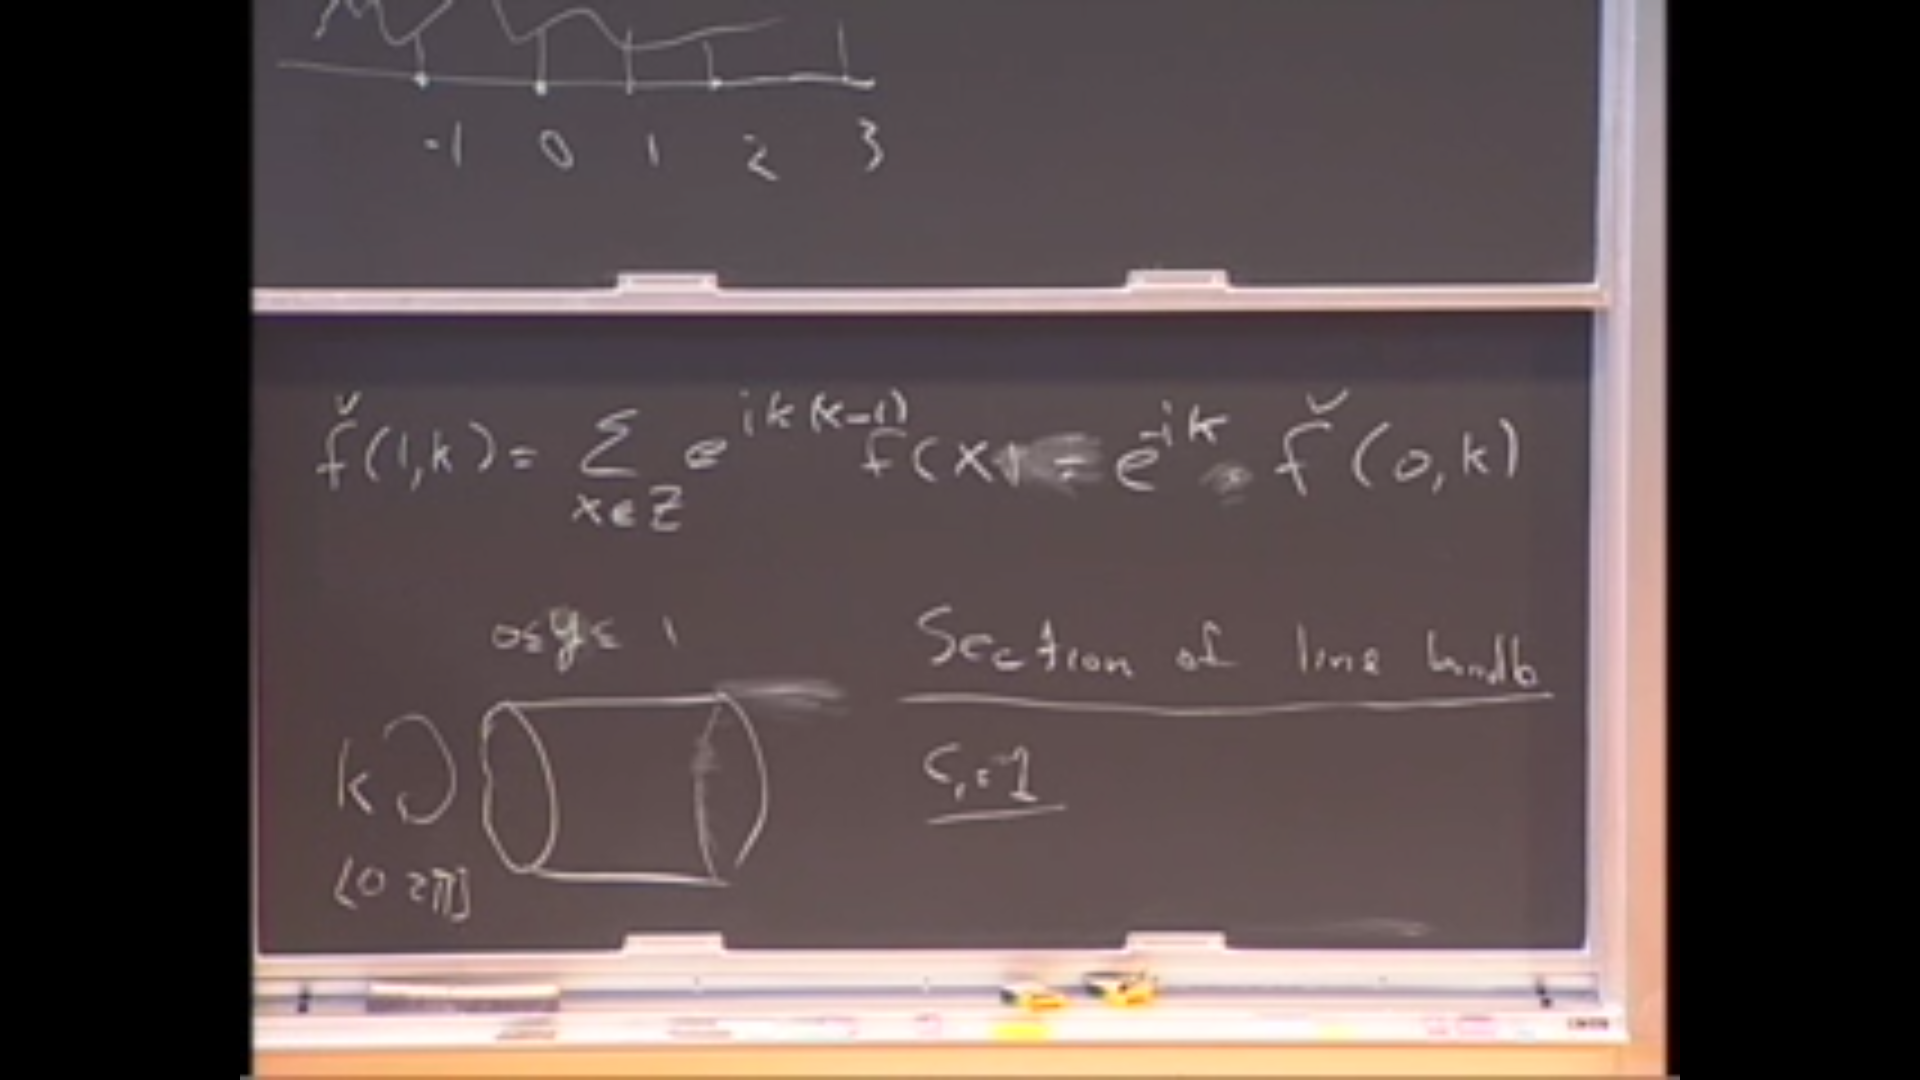 -1 0 1 2 3
f̌(1,k) = Σ_{x∈Z} e^{ik(x-1)} f(x) = e^{-ik} f̌(0,k)
0≤y≤1
Section of line bundle
k
[0 2π]
C₁=1